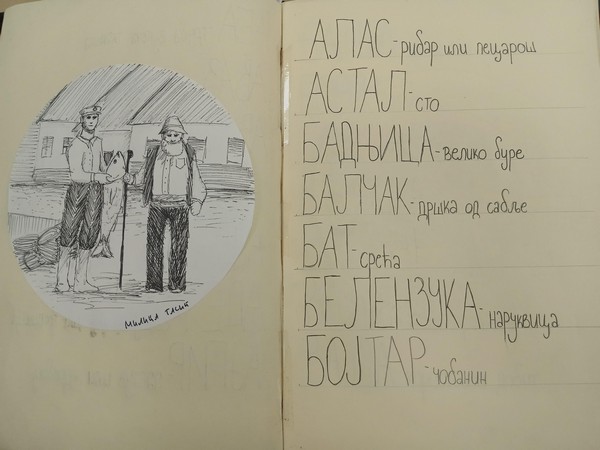 Милица Тасић
АЛАС-рибар или пецарош
АСТАЛ-сто
БАДЊИЦА-велико буре
БАЛЧАК-дршка од сабље
БАТ-срећа
БЕЛЕНЗУКА-наруквица
БОЈТАР-чобанин